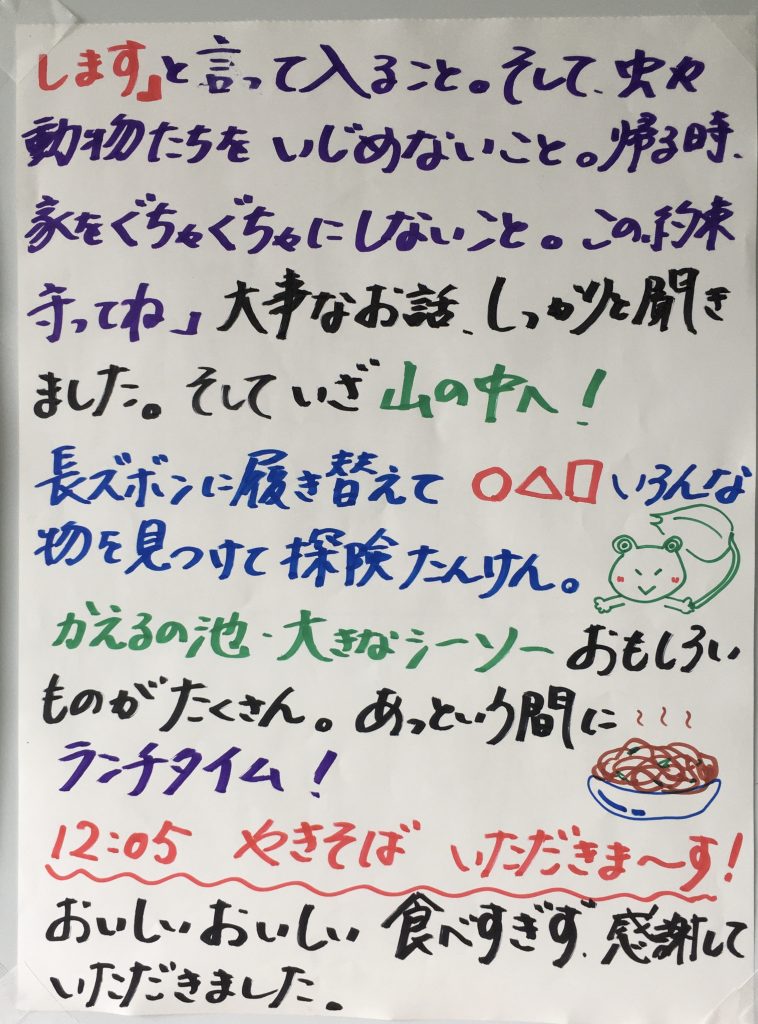 します」と言って入ること。そして、虫や
動物たちをいじめないこと。帰る時、
家をぐちゃぐちゃにしないこと。この約束
守ってね」大事なお話、しっかりと聞き
ました。そしていざ山の中へ!
長ズボンに履き替えて ○△□いろんな
物を見つけて探険たんけん。
かえるの池・大きなシーソー おもしろい
ものがたくさん。あっという間に
ランチタイム!
12:05 やきそば いただきま〜す!
おいしいおいしい 食べすぎず、感謝して
いただきました。